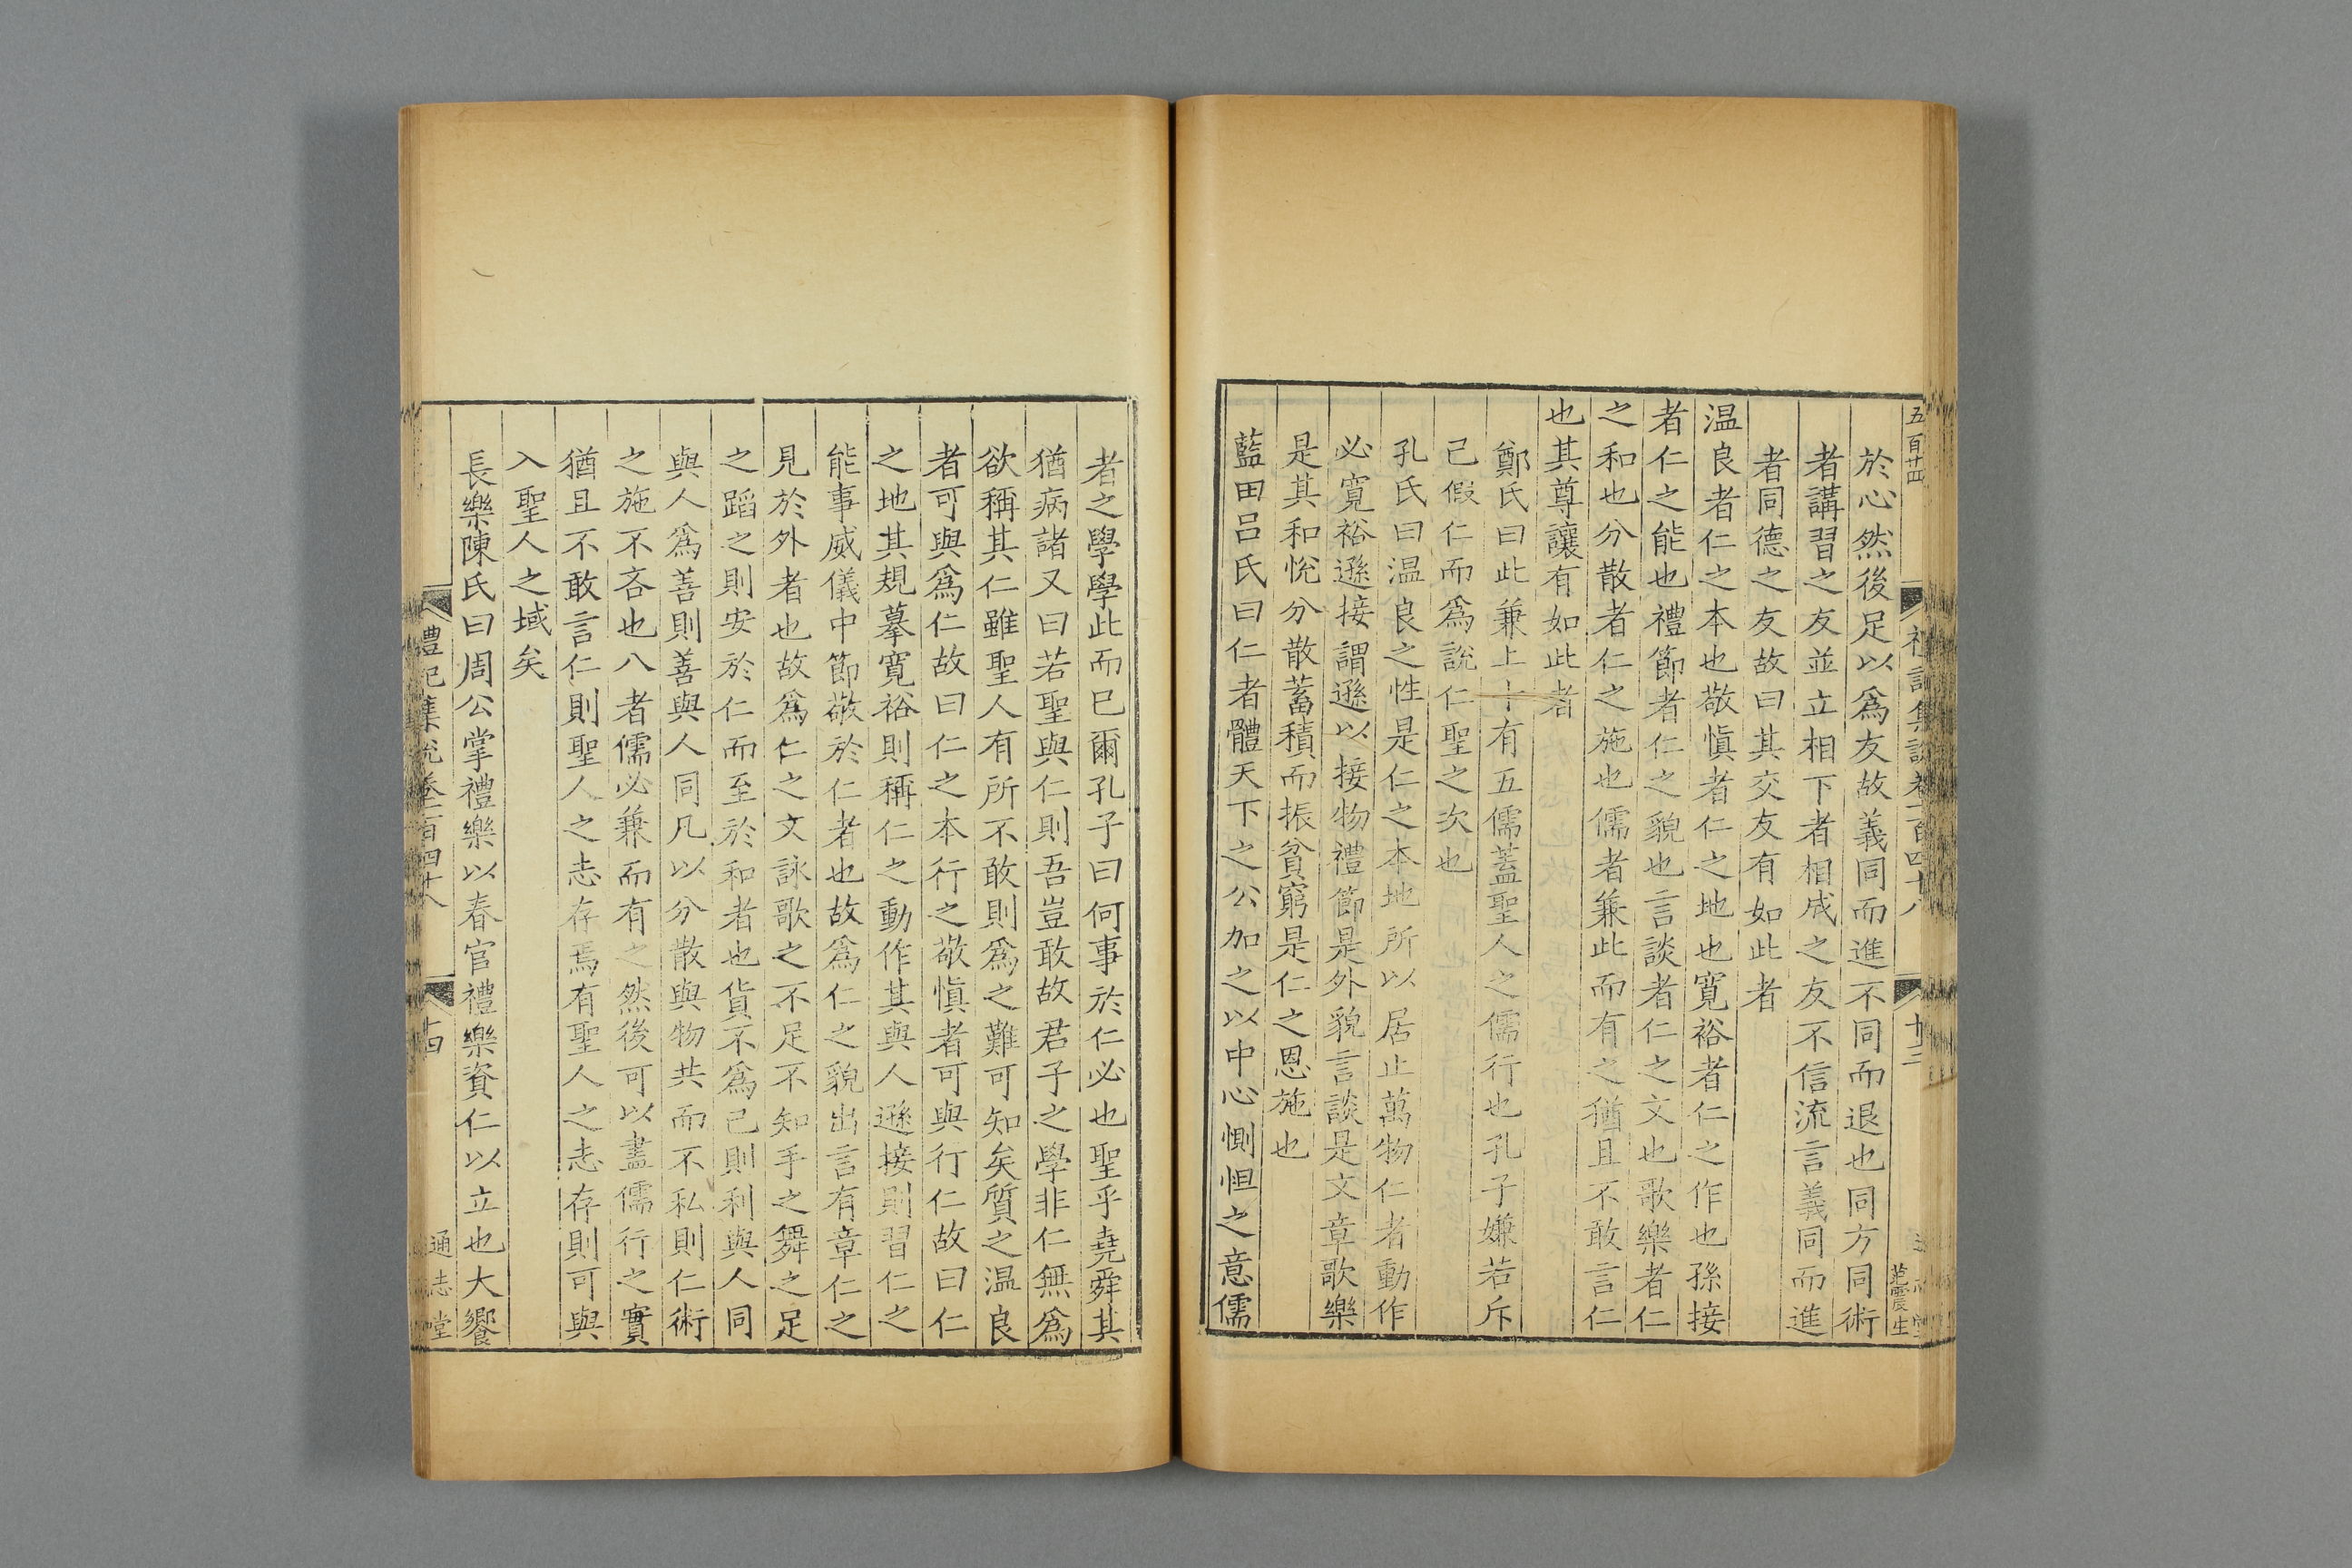 五百廿四
於心然後足以爲友故義同而進不同而退也同方同術
者講習之友並立相下者相成之友不信流言義同而進
者同德之友故曰其交友有如此者
温良者仁之本也敬慎者仁之地也寬裕者仁之作也孫接
者仁之能也禮節者仁之貌也言談者仁之文也歌樂者仁
之和也分散者仁之施也儒者兼此而有之猶且不敢言仁
也其尊讓有如此者
鄭氏曰此兼上十有五儒蓋聖人之儒行也孔子嫌若斥
己假仁而爲說仁聖之次也
孔氏曰温良之性是仁之本地所以居止萬物仁者動作
必寬裕遜接謂遜以接物禮節是外貌言談是文章歌樂
是其和恱分散蓄積而振貧窮是仁之恩施也
藍田吕氏曰仁者體天下之公加之以中心惻怛之意儒
者之學學此而已爾孔子曰何事於仁必也聖乎堯舜其
猶病諸又曰若聖與仁則吾豈敢故君子之學非仁無爲
欲稱其仁雖聖人有所不敢則爲之難可知矣質之温良
者可與爲仁故曰仁之本行之敬慎者可與行仁故曰仁
之地其規摹寬裕則稱仁之動作其與人遜接則習仁之
能事威儀中節敬於仁者也故爲仁之貌出言有章仁之
見於外者也故爲仁之文詠歌之不足不知手之舞之足
之蹈之則安於仁而至於和者也貨不爲己則利與人同
與人爲善則善與人同凡以分散與物共而不私則仁術
之施不吝也八者儒必兼而有之然後可以盡儒行之實
猶且不敢言仁則聖人之志存焉有聖人之志存則可與
入聖人之域矣
長樂陳氏曰周公掌禮樂以春官禮樂資仁以立也大饗
禮記集說卷一百四十八
通志堂